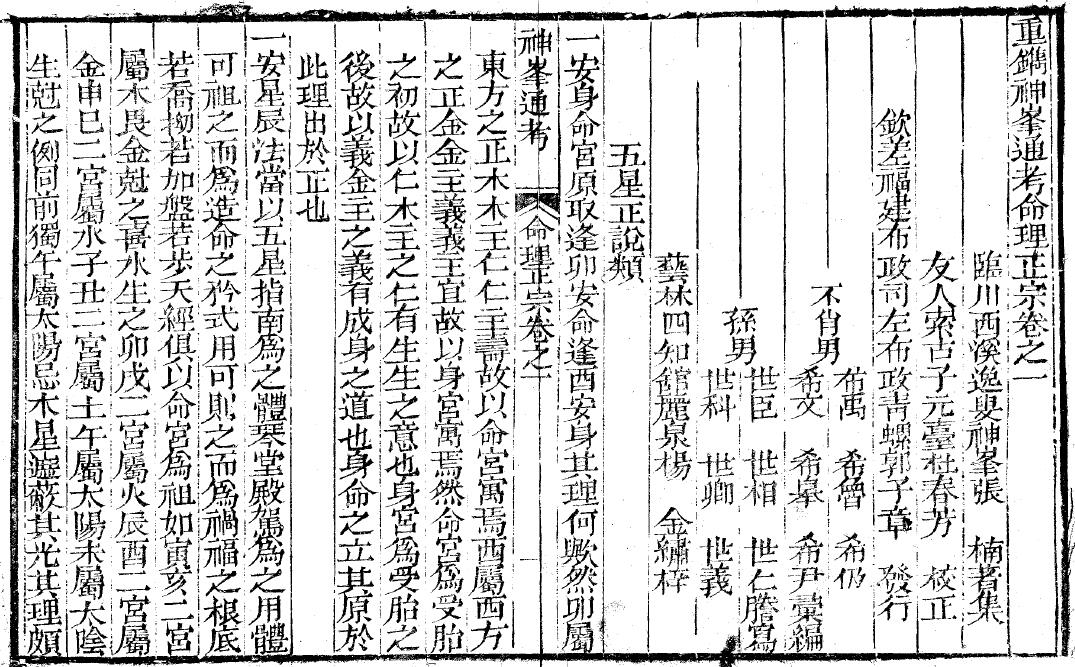 重鐫神峯通考命理正宗卷之一
臨川西溪逸叟神峯張　楠著集
友人索古子元臺杜春芳　校正
欽差福建布政司左布政青螺郭子章　發行
不肖男
希禹　希曾　希仍
希文　希皋　希尹彙編
孫男
世臣　世相　世仁謄寫
世科　世卿　世義
藝林四知館麗泉楊　金繡梓
五星正說類
一安身命宮原取逢卯安命逢酉安身其理何歟然卯屬
神峯通考　命理正宗卷之一　一
東方之正木木主仁仁主壽故以命宮寓焉西屬西方
之正金金主義義主宜故以身宮寓焉然命宮爲受胎
之初故以仁木主之仁有生生之意也身宮爲受胎之
後故以義金主之義有成身之道也身命之立其原於
此理出於正也
一安星辰法當以五星指南爲之體琴堂殿駕爲之用體
可祖之而爲造命之矜式用可則之而爲禍福之根底
若喬拗若加盤若步天經俱以命宮爲祖如寅亥二宮
屬木畏金尅之喜水生之卯戌二宮屬火辰酉二宮屬
金申巳二宮屬水子丑二宮屬土午屬太陽未屬太陰
生尅之例同前獨午屬太陽忌木星遊蔽其光其理頗